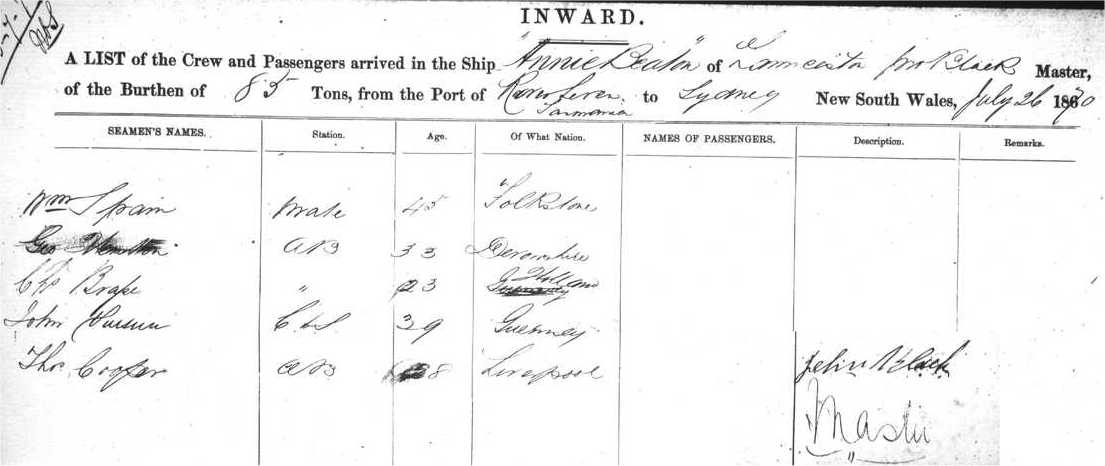 INWARD.
A LIST of the Crew and Passengers arrived in the Ship "Annie Beaton" of Launceston Jno Black Master,
of the Burthen of 85 Tons, from the Port of River Leven, to Sydney New South Wales, July 26 1870
Tasmania
SEAMEN'S NAMES. Station. Age. Of What Nation. NAMES OF PASSENGERS. Description. Remarks.
Wm Spain Mate 45 Folkstone
Geo AB 33 Devonshire
Chs Brape " 23 Holland
John C & S 39 Guernsey
Thos Cooper AB 8 Liverpool
John Black
Master